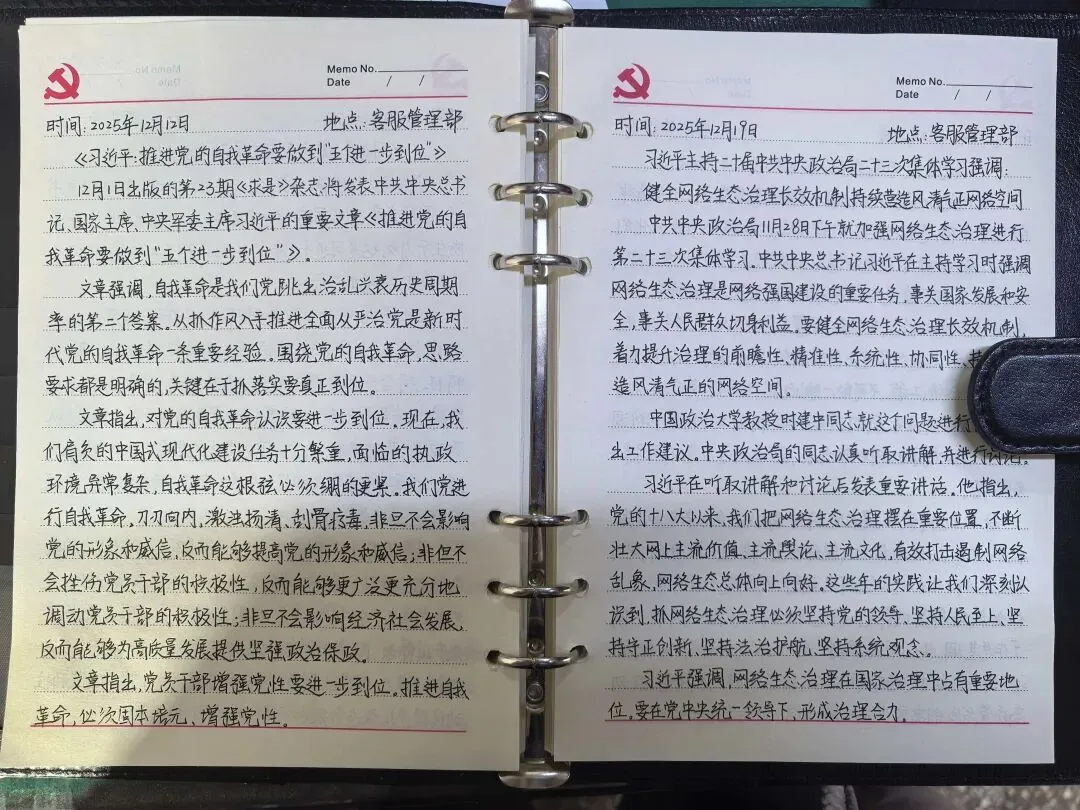 Memo No.
Date / /
时间:2025年12月12日 地点:客服管理部
《习近平:推进党的自我革命要做到"五个进一步到位"》
12月1日出版的第23期《求是》杂志将发表中共中央总书
记、国家主席、中央军委主席习近平的重要文章《推进党的自
我革命要做到"五个进一步到位"》。
文章强调,自我革命是我们党跳出治乱兴衰历史周期
率的第二个答案。从抓作风入手推进全面从严治党是新时
代党的自我革命一条重要经验。围绕党的自我革命,思路
要求都是明确的,关键在于抓落实要真正到位。
文章指出,对党的自我革命认识要进一步到位。现在,我
们肩负的中国式现代化建设任务十分繁重,面临的执政
环境异常复杂,自我革命这根弦必须绷的更紧。我们党进
行自我革命,刀刃向内、激浊扬清、刮骨疗毒,非旦不会影响
党的形象和威信,反而能够提高党的形象和威信;非但不
会挫伤党员干部的积极性,反而能够更广泛更充分地
调动党员干部的积极性;非旦不会影响经济社会发展,
反而能够为高质量发展提供坚强政治保政。
文章指出,党员干部增强党性要进一步到位。推进自我
革命,必须固本培元、增强党性。
Memo No.
Date / /
时间:2025年12月19日 地点:客服管理部
习近平主持二十届中共中央政治局二十三次集体学习强调:
健全网络生态治理长效机制持续营造风清气正网络空间
中共中央政治局11月28日下午就加强网络生态治理进行
第二十三次集体学习。中共中央总书记习近平在主持学习时强调
网络生态治理是网络强国建设的重要任务,事关国家发展和安
全,事关人民群众切身利益。要健全网络生态治理长效机制,
着力提升治理的前瞻性、精准性、系统性、协同性,
造风清气正的网络空间。
中国政治大学教授时建中同志就这个问题进行
出工作建议。中央政治局的同志认真听取讲解,并进行讨论。
习近平在听取讲解和讨论后发表重要讲话。他指出,
党的十八大以来,我们把网络生态治理摆在重要位置,不断
壮大网上主流价值、主流舆论、主流文化,有效打击遏制网络
乱象,网络生态总体向上向好。这些年的实践让我们深刻认
识到,抓网络生态治理必须坚持党的领导、坚持人民至上、坚
持守正创新、坚持法治护航、坚持系统观念。
习近平强调,网络生态治理在国家治理中占有重要地
位。要在党中央统一领导下,形成治理合力。